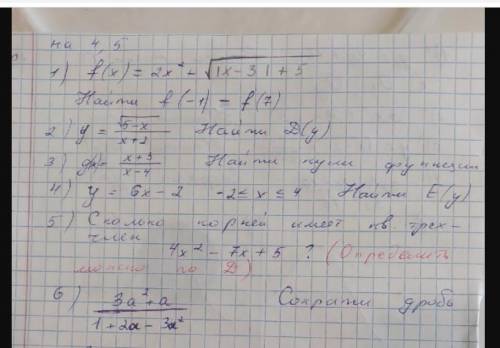 на 4, 5
1) f(x) = 2x² + √|x - 3| + 5
Найти f(-1) - f(7)
2) y = √5-x / x+2 Найти D(y)
3) = x+3 / x-4 Найти нули функции
4) y = 6x - 2 -2 ≤ x ≤ 4 Найти E(y)
5) Сколько корней имеет кв. трех-
член
4x² - 7x + 5 ? (Определить
можно по D)
6) 3a²+a / 1 + 2a - 3a² Сократи дробь